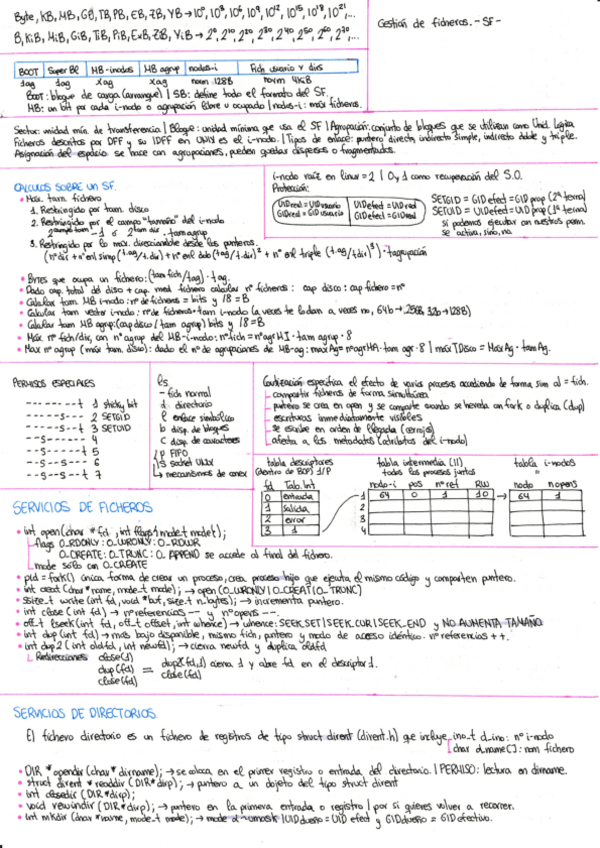 Byte, KB, MB, GB, TB, PB, EB, ZB, YB → 10⁰, 10³, 10⁶, 10⁹, 10¹², 10¹⁵, 10¹⁸, 10²¹,...
B, KiB, MiB, GiB, TiB, PiB, ExB, ZiB, YiB → 2⁰, 2¹⁰, 2²⁰, 2³⁰, 2⁴⁰, 2⁵⁰, 2⁶⁰, 2⁷⁰,...
Gestión de ficheros. - SF -
BOOT | Super Bl | MB-inodos | MB agrup | nodos-i | Fich usuario y dirs
1ag 1ag xag xag norm 128B norm 4KiB
Boot: bloque de carga (arranque) | SB: define todo el formato del SF.
MB: un bit por cada i-nodo o agrupación libre u ocupado | nodos-i: máx ficheros.
Sector: unidad mín. de transferencia | Bloque: unidad mínima que usa el SF | Agrupación: conjunto de bloques que se utilizan como Unid. Lógica
Ficheros descritos por DFF y su IDFF en UNIX es el i-nodo. | Tipos de enlace: puntero directo, indirecto simple, indirecto doble y triple.
Asignación del espacio se hace con agrupaciones, pueden quedar dispersos o fragmentados.
CALCULOS SOBRE UN SF.
• Max. tam. fichero
1. Restringido por tam. disco
2. Restringido por el campo "tamaño" del i-nodo
3. Restringido por lo max. direccionable desde los punteros.
(nº dir + nº enl simp (t.ag/t.dir) + nº enl dob (t.ag/t.dir)² + nº enl triple (t.ag/t.dir)³) · tagrupación
i-nodo raíz en linux = 2 | 0 y 1 como recuperación del S.O.
Protección:
UIDreal = UIDusuario | UIDefed = UIDreal
GIDreal = GIDusuario | GIDefed = GIDreal
SETGID = GIDefed = GIDprop (2ª terna)
SETUID = UIDefed = UIDprop (1ª terna)
si podemos ejecutar con nuestros perm.
se activa, sino, no
• Bytes que ocupa un fichero: (tam fich/tag) · tag.
• Dado cap. total del disco + cap. med fichero calcular nº ficheros: cap disco : cap fichero = nº
• Calcular tam. MB i-nodo: nº de ficheros = bits y /8 = B
• Calcular tam vector i-nodo: nº de ficheros · tam i-nodo (a veces te lo dan a veces no, 64b → 256B, 32b → 128B)
• Calcular tam MB agrup: (cap disco / tam agrup) bits y /8 = B
• Max. nº fich/dir, con nº agrup del MB-i-nodo: nº fich = nº agr MI · tam agrup · 8
• Max nº agrup (máx tam. disco): dado el nº de agrupaciones de MB-ag: maxAg = nºagrHA · tam agr · 8 | max TDisco = MaxAg · tam Ag.
PERMISOS ESPECIALES
--------t 1 sticky bit
-----s--- 2 SETGID
-----s--t 3 SETUID
--s------ 4
--s-----t 5
--s--s--- 6
--s--s--t 7
ls
- fich normal
d directorio
l enlace simbólico
b disp. de bloques
c disp. de caracteres
p FIFO
s socket UNIX
↳ mecanismos de conex
Coutilización especifica el efecto de varios procesos accediendo de forma sim al = fich.
- compartir ficheros de forma simultánea
- puntero se crea en open y se comparte cuando se hereda con fork o duplica (dup)
- escrituras inmediatamente visibles
- se escribe en orden de llegada (cerrojo)
- afecta a los metadatos (atributos del i-nodo)
tabla descriptores
(dentro de BCP) 1/P
fd | Tab. Int
0 | entrada
1 | salida
2 | error
3 | 1
tabla intermedia (II)
todos los procesos juntos
nodo-i pos nº ref RW
1 | 64 | 0 | 1 | 10
2
3
4
tabla i-nodos
nodo nopens
64 | 1
SERVICIOS DE FICHEROS
• int open (char * fd, int flags, mode-t modet);
flags O_RDONLY: O_WRONLY: O_RDWR
O_CREATE: O_TRUNC: O_APPEND se accede al final del fichero.
mode sólo con O_CREATE
• pid = fork() única forma de crear un proceso, crea proceso hijo que ejecuta el mismo código y comparten puntero.
• int creat (char *name, mode_t mode); → open (O_WRONLY | O_CREAT | O_TRUNC)
• ssize_t write (int fd, void *buf, size_t n_bytes); → incrementa puntero.
• int close (int fd) → nº referencias -- y nº opens --.
• off_t lseek (int fd, off_t offset, int whence) → whence: SEEK_SET | SEEK_CUR | SEEK_END y NO AUMENTA TAMAÑO
• int dup (int fd) → mas bajo disponible, mismo fich, puntero y modo de acceso idéntico. nº referencias ++.
• int dup2 (int oldfd, int newfd); → cierra newfd y duplica oldfd
Redirecciones close(1)
dup(fd) = dup2(fd,1) cierra 1 y abre fd en el descriptor 1.
close(fd) close(fd)
SERVICIOS DE DIRECTORIOS.
El fichero directorio es un fichero de registros de tipo struct dirent (dirent.h) que incluye ino_t d_ino: nº i-nodo
char d_name[]: nom fichero
• DIR *opendir (char* dirname); → se coloca en el primer registro o entrada del directorio. | PERMISO: lectura en dirname.
• struct dirent *readdir (DIR *dirp); → puntero a un objeto del tipo struct dirent
• int closedir (DIR *dirp);
• void rewindir (DIR *dirp); → puntero en la primera entrada o registro | por si quieres volver a recorrer.
• int mkdir (char *name, mode_t mode); → mode & ~umask | UID dueño = UID efed y GID dueño = GID efectivo.